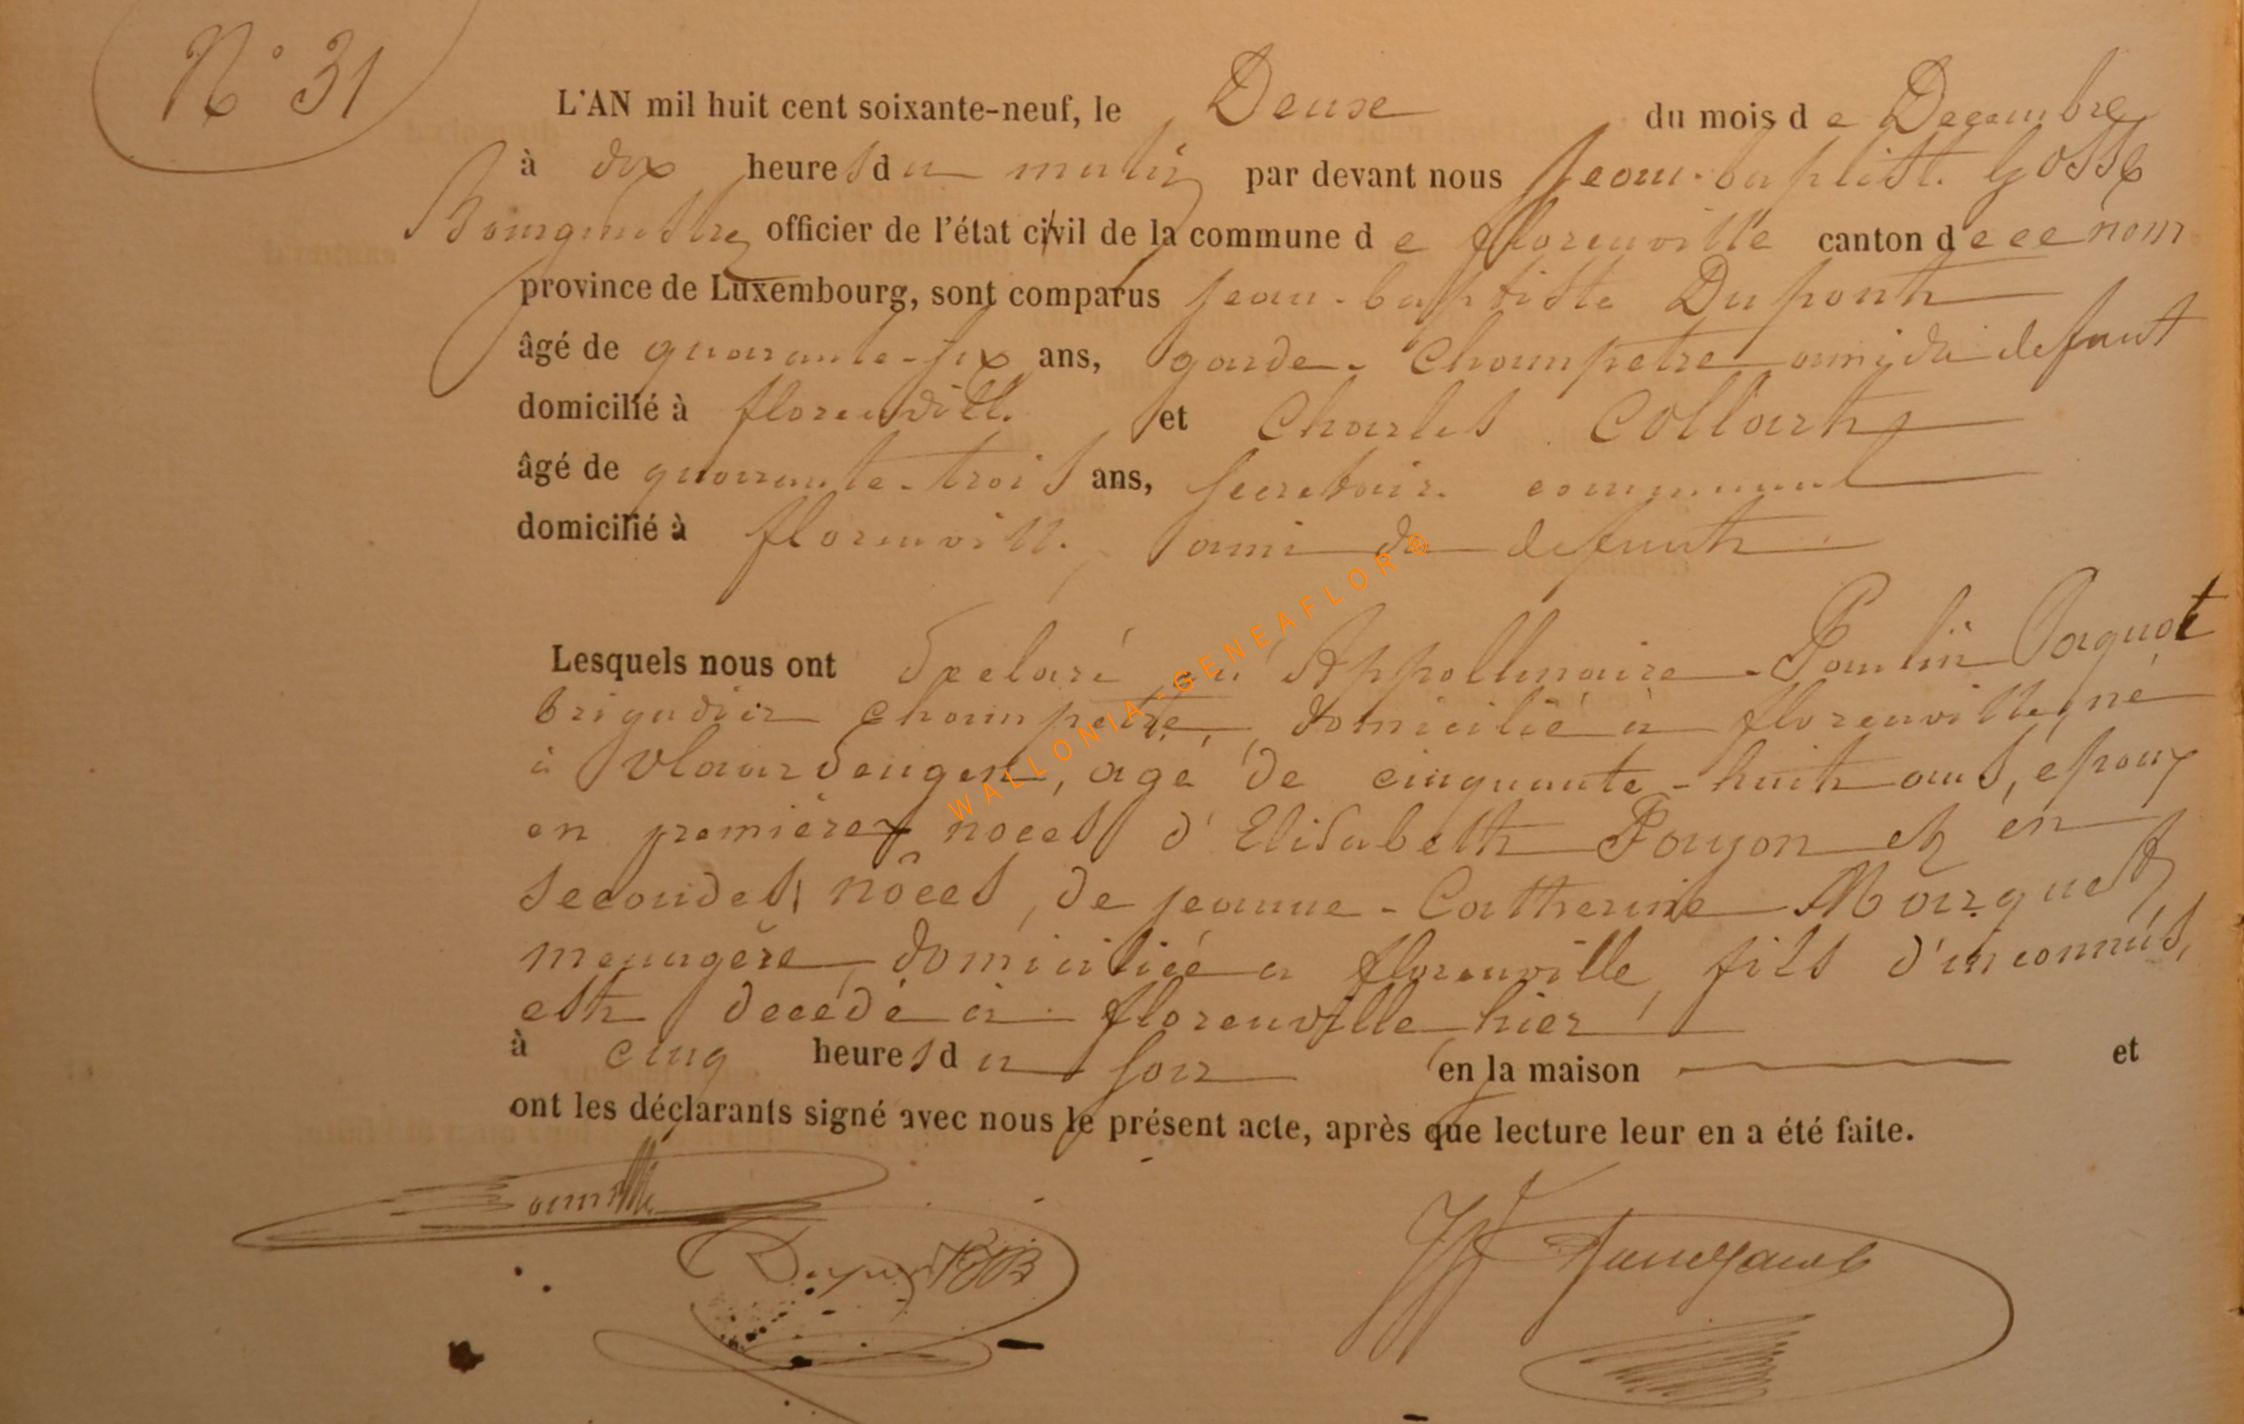 N° 31
L'AN mil huit cent soixante-neuf, le Deuse du mois de Decembre
à dix heures du matin par devant nous Jean-baptiste Gosse
Bourgmestre officier de l'état civil de la commune de florenville canton de ce nom
province de Luxembourg, sont comparus jean-baptiste Dupont
âgé de quarante-six ans, garde-Champetre ami du defunt
domicilié à florenville et Charles Collart
âgé de quarante-trois ans, secretaire communal
domicilié à florenville, ami du defunt
Lesquels nous ont declaré qu' Appollinaire-Paulin Paquot
brigadier champetre, domicilié à florenville, né
à Vlaardengen, agé de cinquante-huit ans, epoux
en premières noces d'Elisabeth Poujon et en
secondes nôces, de jeanne-Catherine Marquet
menagère, domiciliée a florenville, fils d'inconnus,
est decédé à florenville hier
à cinq heures du soir en la maison et
ont les déclarants signé avec nous le présent acte, après que lecture leur en a été faite.
WALLONIA-GENEAFLOR®